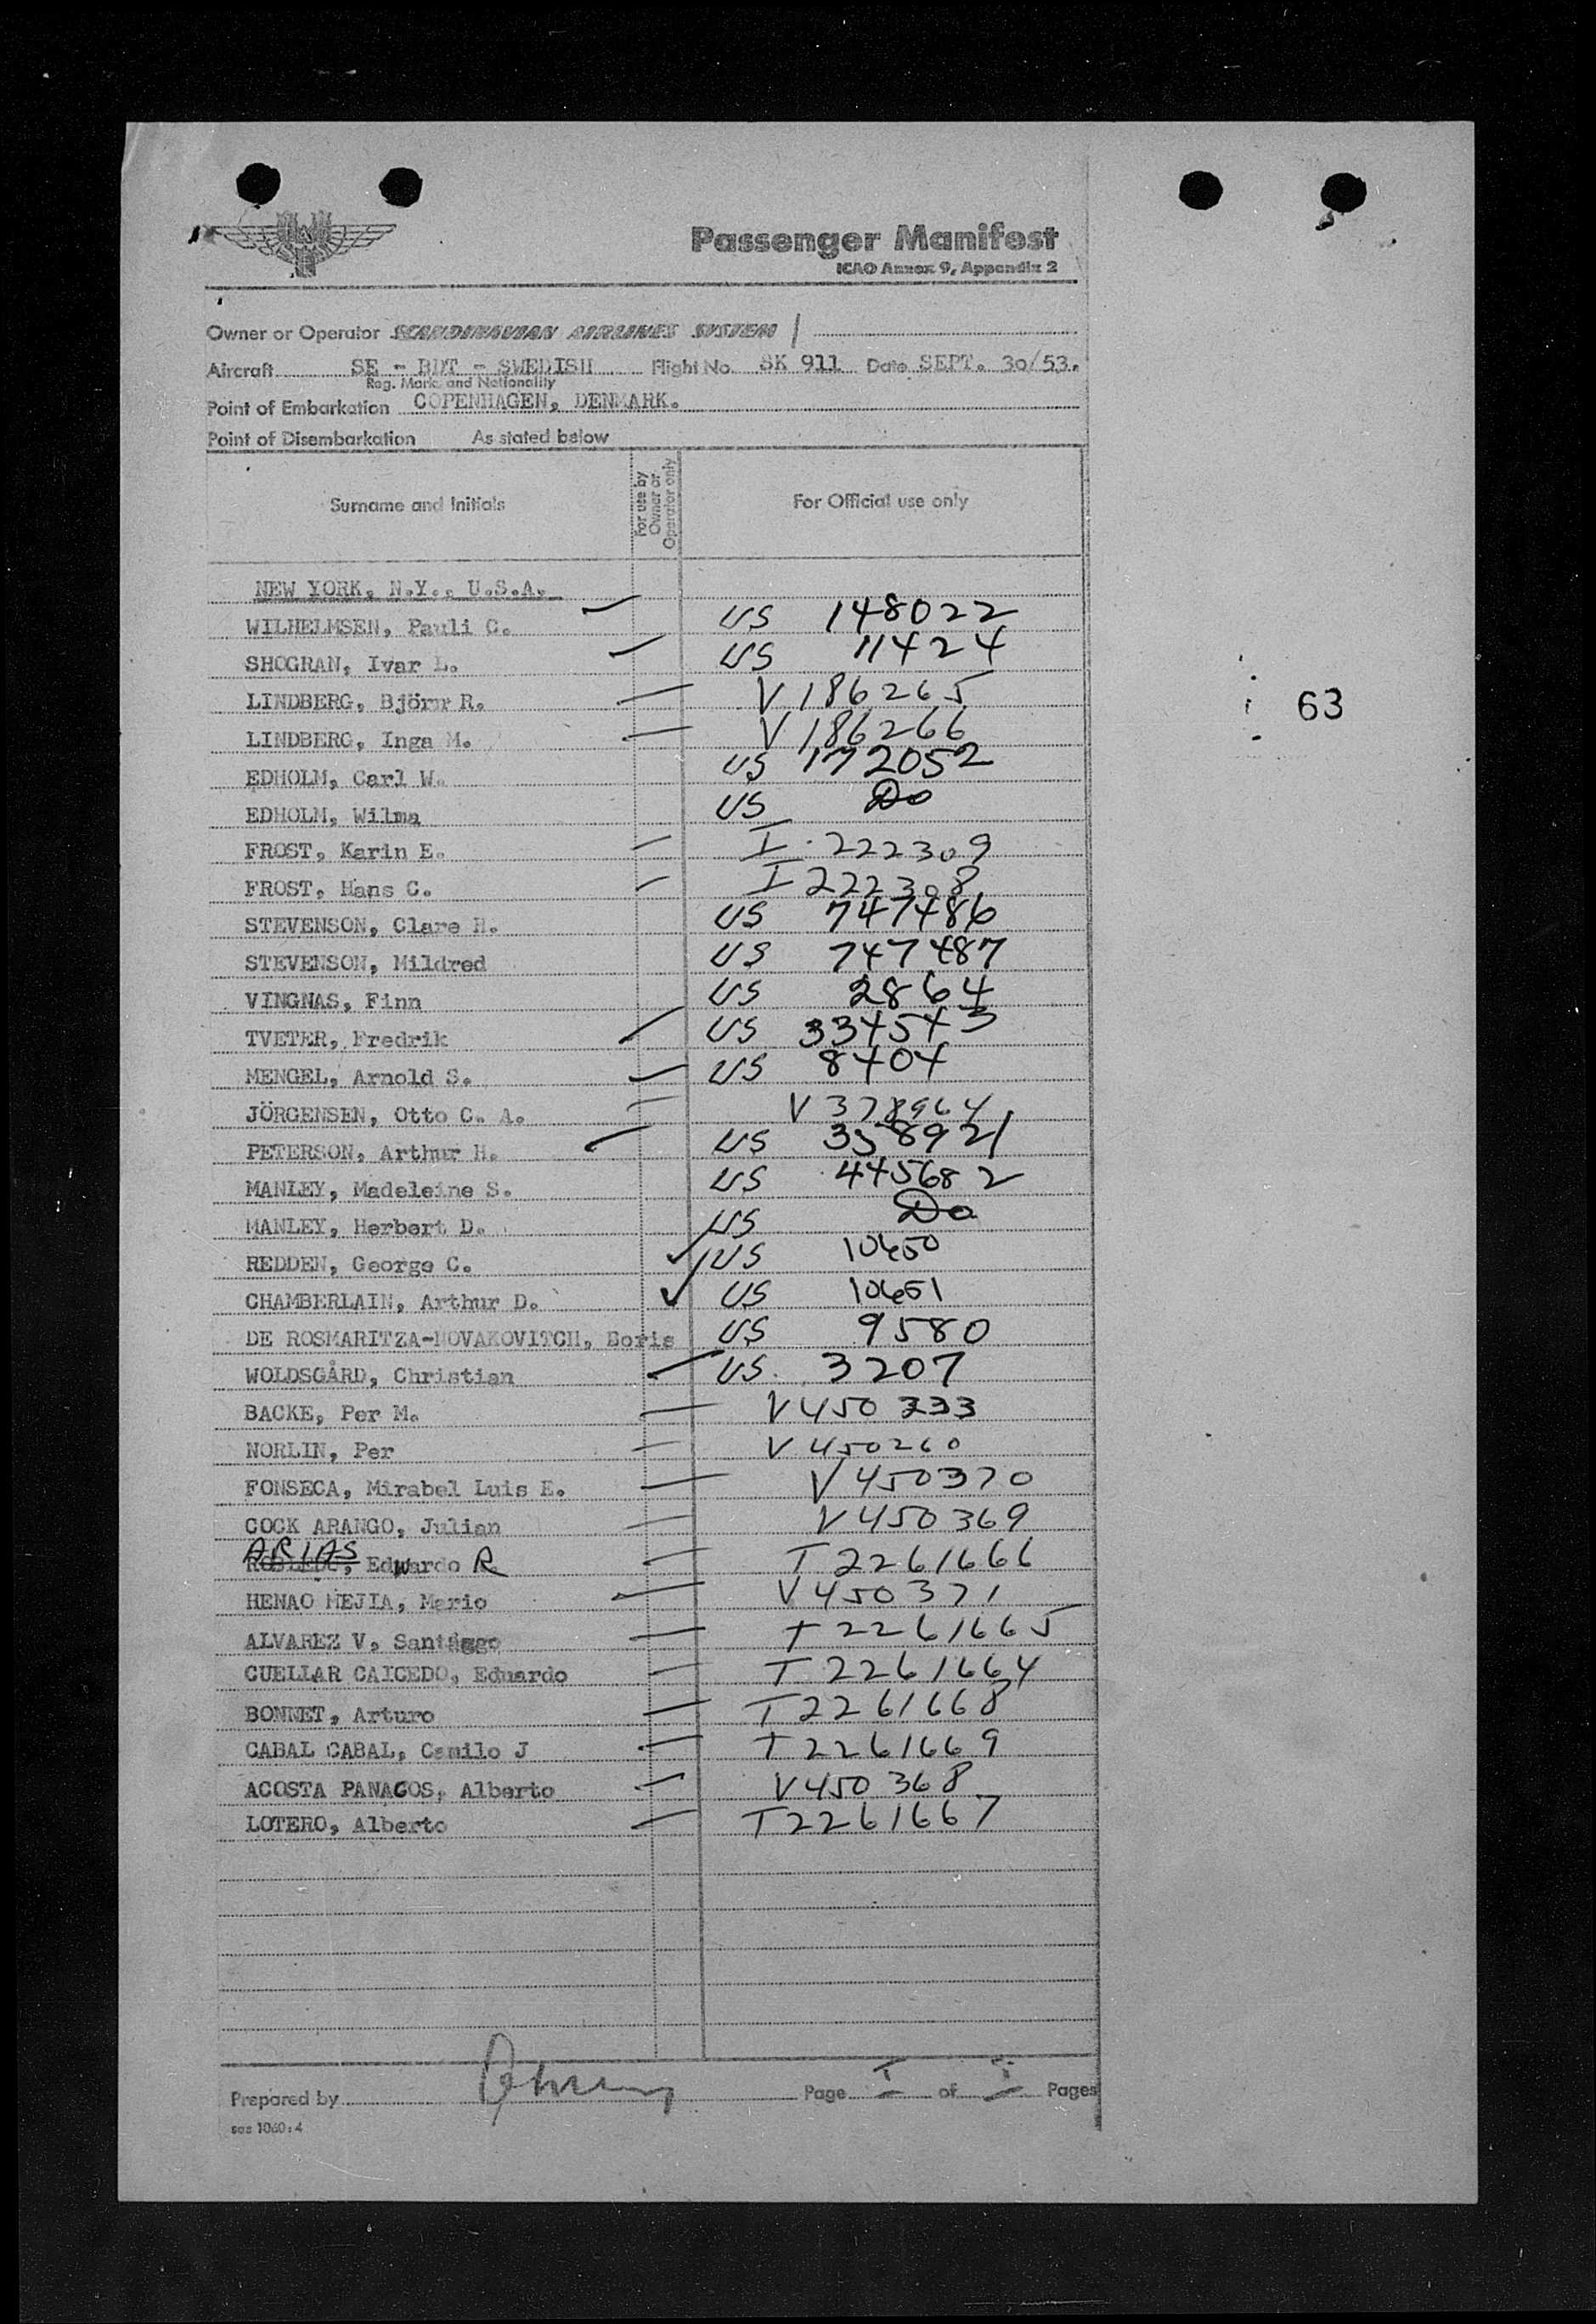 Passenger Manifest
ICAO Annex 9, Appendix 2
Owner or Operator SCANDINAVIAN AIRLINES SYSTEM
Aircraft SE - BDT - SWEDISH Flight No. SK 911 Date SEPT. 30/53.
Reg. Mark. and Nationality
Point of Embarkation COPENHAGEN, DENMARK.
Point of Disembarkation As stated below
Surname and Initials For use by Owner or Operator only For Official use only
NEW YORK, N.Y., U.S.A.
WILHELMSEN, Pauli C. US 148022
SHOGRAN, Ivar L. US 11424
LINDBERG, Björn R. V 186265
LINDBERG, Inga M. V 186266
63
EDHOLM, Carl W. US 172052
EDHOLM, Wilma US Do
FROST, Karin E. I 222309
FROST, Hans C. I 222308
STEVENSON, Clare H. US 747486
STEVENSON, Mildred US 747487
VINGNAS, Finn US 2864
TVETER, Fredrik US 334543
MENGEL, Arnold S. US 8404
JÖRGENSEN, Otto C. A. V 378964
PETERSON, Arthur H. US 358921
MANLEY, Madeleine S. US 445682
MANLEY, Herbert D. US Do
REDDEN, George C. US 10650
CHAMBERLAIN, Arthur D. US 10651
DE ROSMARITZA-NOVAKOVITCH, Boris US 9580
WOLDSGÅRD, Christian US. 3207
BACKE, Per M. V 450 333
NORLIN, Per V 450260
FONSECA, Mirabel Luis E. V 450370
COCK ARANGO, Julian V 450369
ARIAS Edwardo R T 2261666
HENAO MEJIA, Mario V 450371
ALVAREZ V, Santiago T 2261665
CUELLAR CAICEDO, Eduardo T 2261664
BONNET, Arturo T 2261668
CABAL CABAL, Camilo J T 2261669
ACOSTA PANAGOS, Alberto V 450 368
LOTERO, Alberto T 2261667
Prepared by Page I of I Pages
sas 1060:4